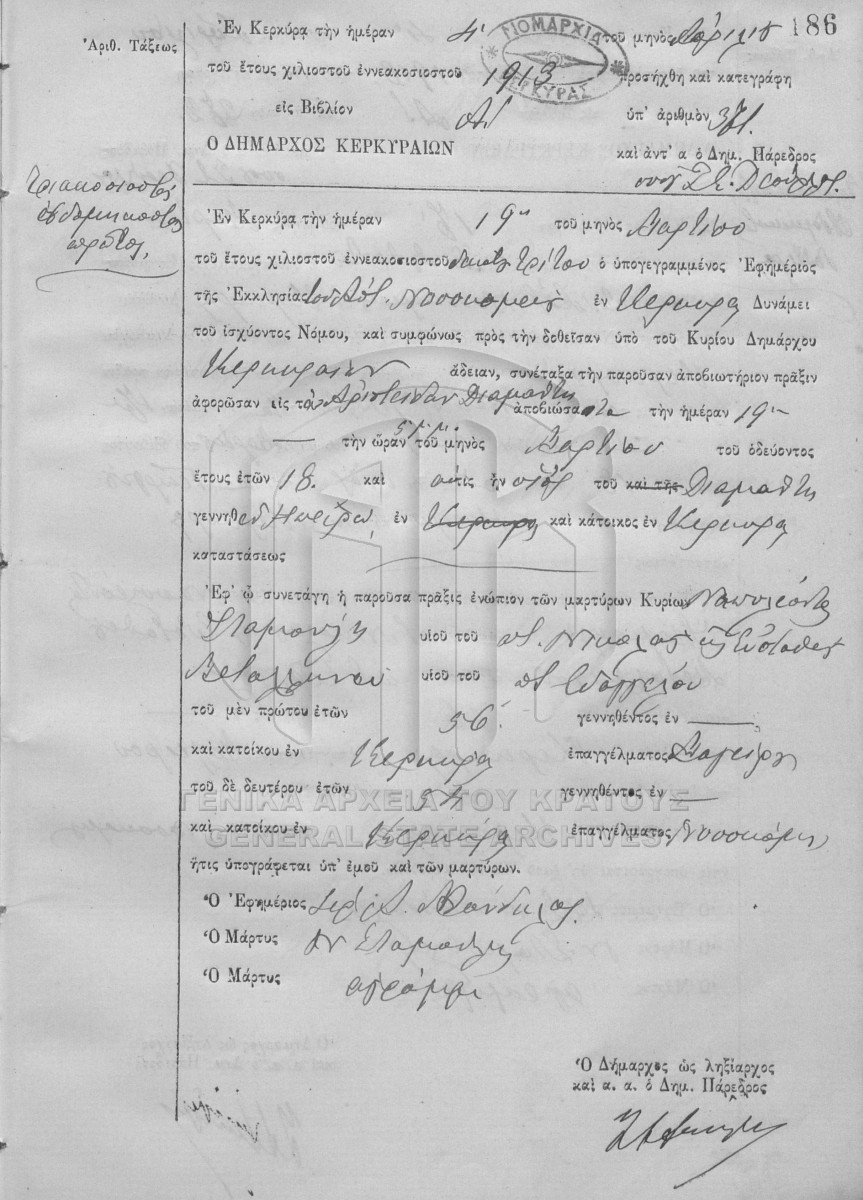 186
Ἀριθ. Τάξεως
Ἐν Κερκύρᾳ τὴν ἡμέραν 4 τοῦ μηνὸς Ἀπριλίου
τοῦ ἔτους χιλιοστοῦ ἐννεακοσιοστοῦ 1913 προσήχθη καὶ κατεγράφη
εἰς Βιβλίον Α! ὑπ' ἀριθμὸν 371.
Ο ΔΗΜΑΡΧΟΣ ΚΕΡΚΥΡΑΙΩΝ
καὶ ἀντ' α ὁ Δημ. Πάρεδρος
τριακοσιοστὸς
ἑβδομηκοστὸς
πρῶτος,
Ἐν Κερκύρᾳ τὴν ἡμέραν 19ην τοῦ μηνὸς Μαρτίου
τοῦ ἔτους χιλιοστοῦ ἐννεακοσιοστοῦ δεκάτου τρίτου ὁ ὑπογεγραμμένος Ἐφημέριος
τῆς Ἐκκλησίας τοῦ Νοσοκομείου ἐν Κερκύρᾳ Δυνάμει
τοῦ ἰσχύοντος Νόμου, καὶ συμφώνως πρὸς τὴν δοθεῖσαν ὑπὸ τοῦ Κυρίου Δημάρχου
Κερκυραίων ἄδειαν, συνέταξα τὴν παροῦσαν ἀποβιωτήριον πρᾶξιν
ἀφορῶσαν εἰς τὸν Ἀριστείδην Διαμάντη ἀποβιώσαντα τὴν ἡμέραν 19ην
— τὴν ὥραν 5 μ.μ. τοῦ μηνὸς Μαρτίου τοῦ ὁδεύοντος
ἔτους ἐτῶν 18. καὶ ὅστις ἦν υἱὸς τοῦ καὶ τῆς Διαμάντη
γεννηθεὶς Ἠπείρῳ, ἐν Κερκύρᾳ καὶ κάτοικος ἐν Κερκύρᾳ
καταστάσεως
Ἐφ' ᾧ συνετάγη ἡ παροῦσα πρᾶξις ἐνώπιον τῶν μαρτύρων Κυρίων Ναπολέοντα
Σταματέλη υἱοῦ τοῦ ποτ. Νικολάου καὶ Εὐσταθίου
Βεταλληνοῦ υἱοῦ τοῦ ποτ Εὐαγγέλου
τοῦ μὲν πρώτου ἐτῶν 56. γεννηθέντος ἐν —
καὶ κατοίκου ἐν Κερκύρᾳ ἐπαγγέλματος Μαγείρου
τοῦ δὲ δευτέρου ἐτῶν 54 γεννηθέντος ἐν —
καὶ κατοίκου ἐν Κερκύρᾳ ἐπαγγέλματος Νοσοκόμου
ἥτις ὑπογράφεται ὑπ' ἐμοῦ καὶ τῶν μαρτύρων.
Ὁ Ἐφημέριος
Ὁ Μάρτυς
Ὁ Μάρτυς ἀγράμμ.
Ὁ Δήμαρχος ὡς ληξίαρχος
καὶ α. α. ὁ Δημ. Πάρεδρος
ΓΕΝΙΚΑ ΑΡΧΕΙΑ ΤΟΥ ΚΡΑΤΟΥΣ
GENERAL STATE ARCHIVES